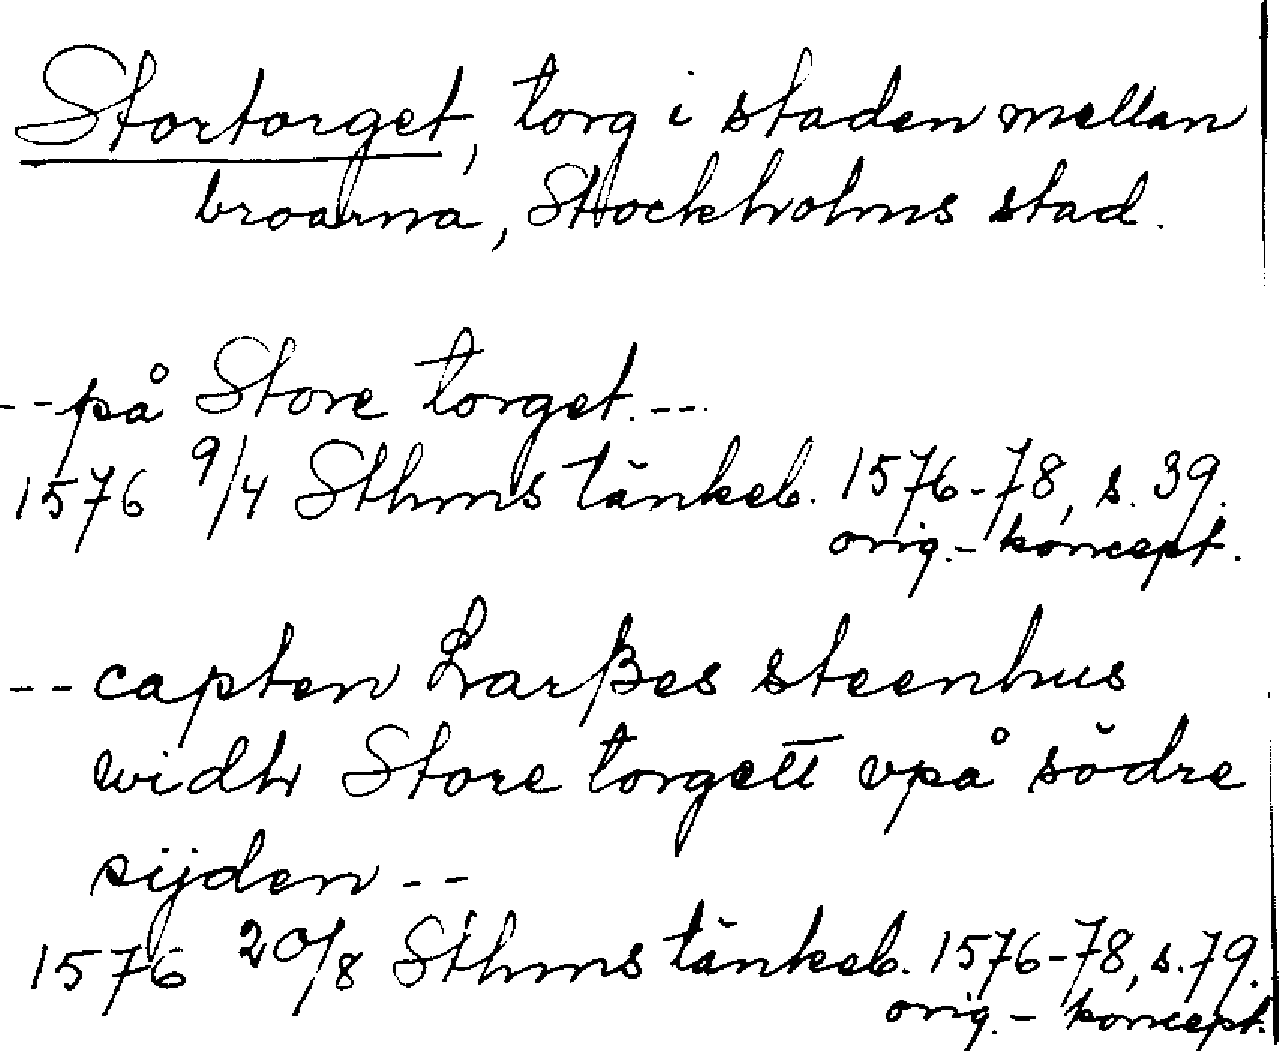 Stortorget, torg i staden mellan
broarna, Stockholms stad.
-- på Store torget. ---
1576 9/4 Sthms tänkeb. 1576-78, s. 39.
orig.- koncept.
-- capten Larßes steenhus
widh Store torgett vpå södre
sijden --
1576 20/8 Sthms tänkeb. 1576-78, s. 79.
orig. - koncept.